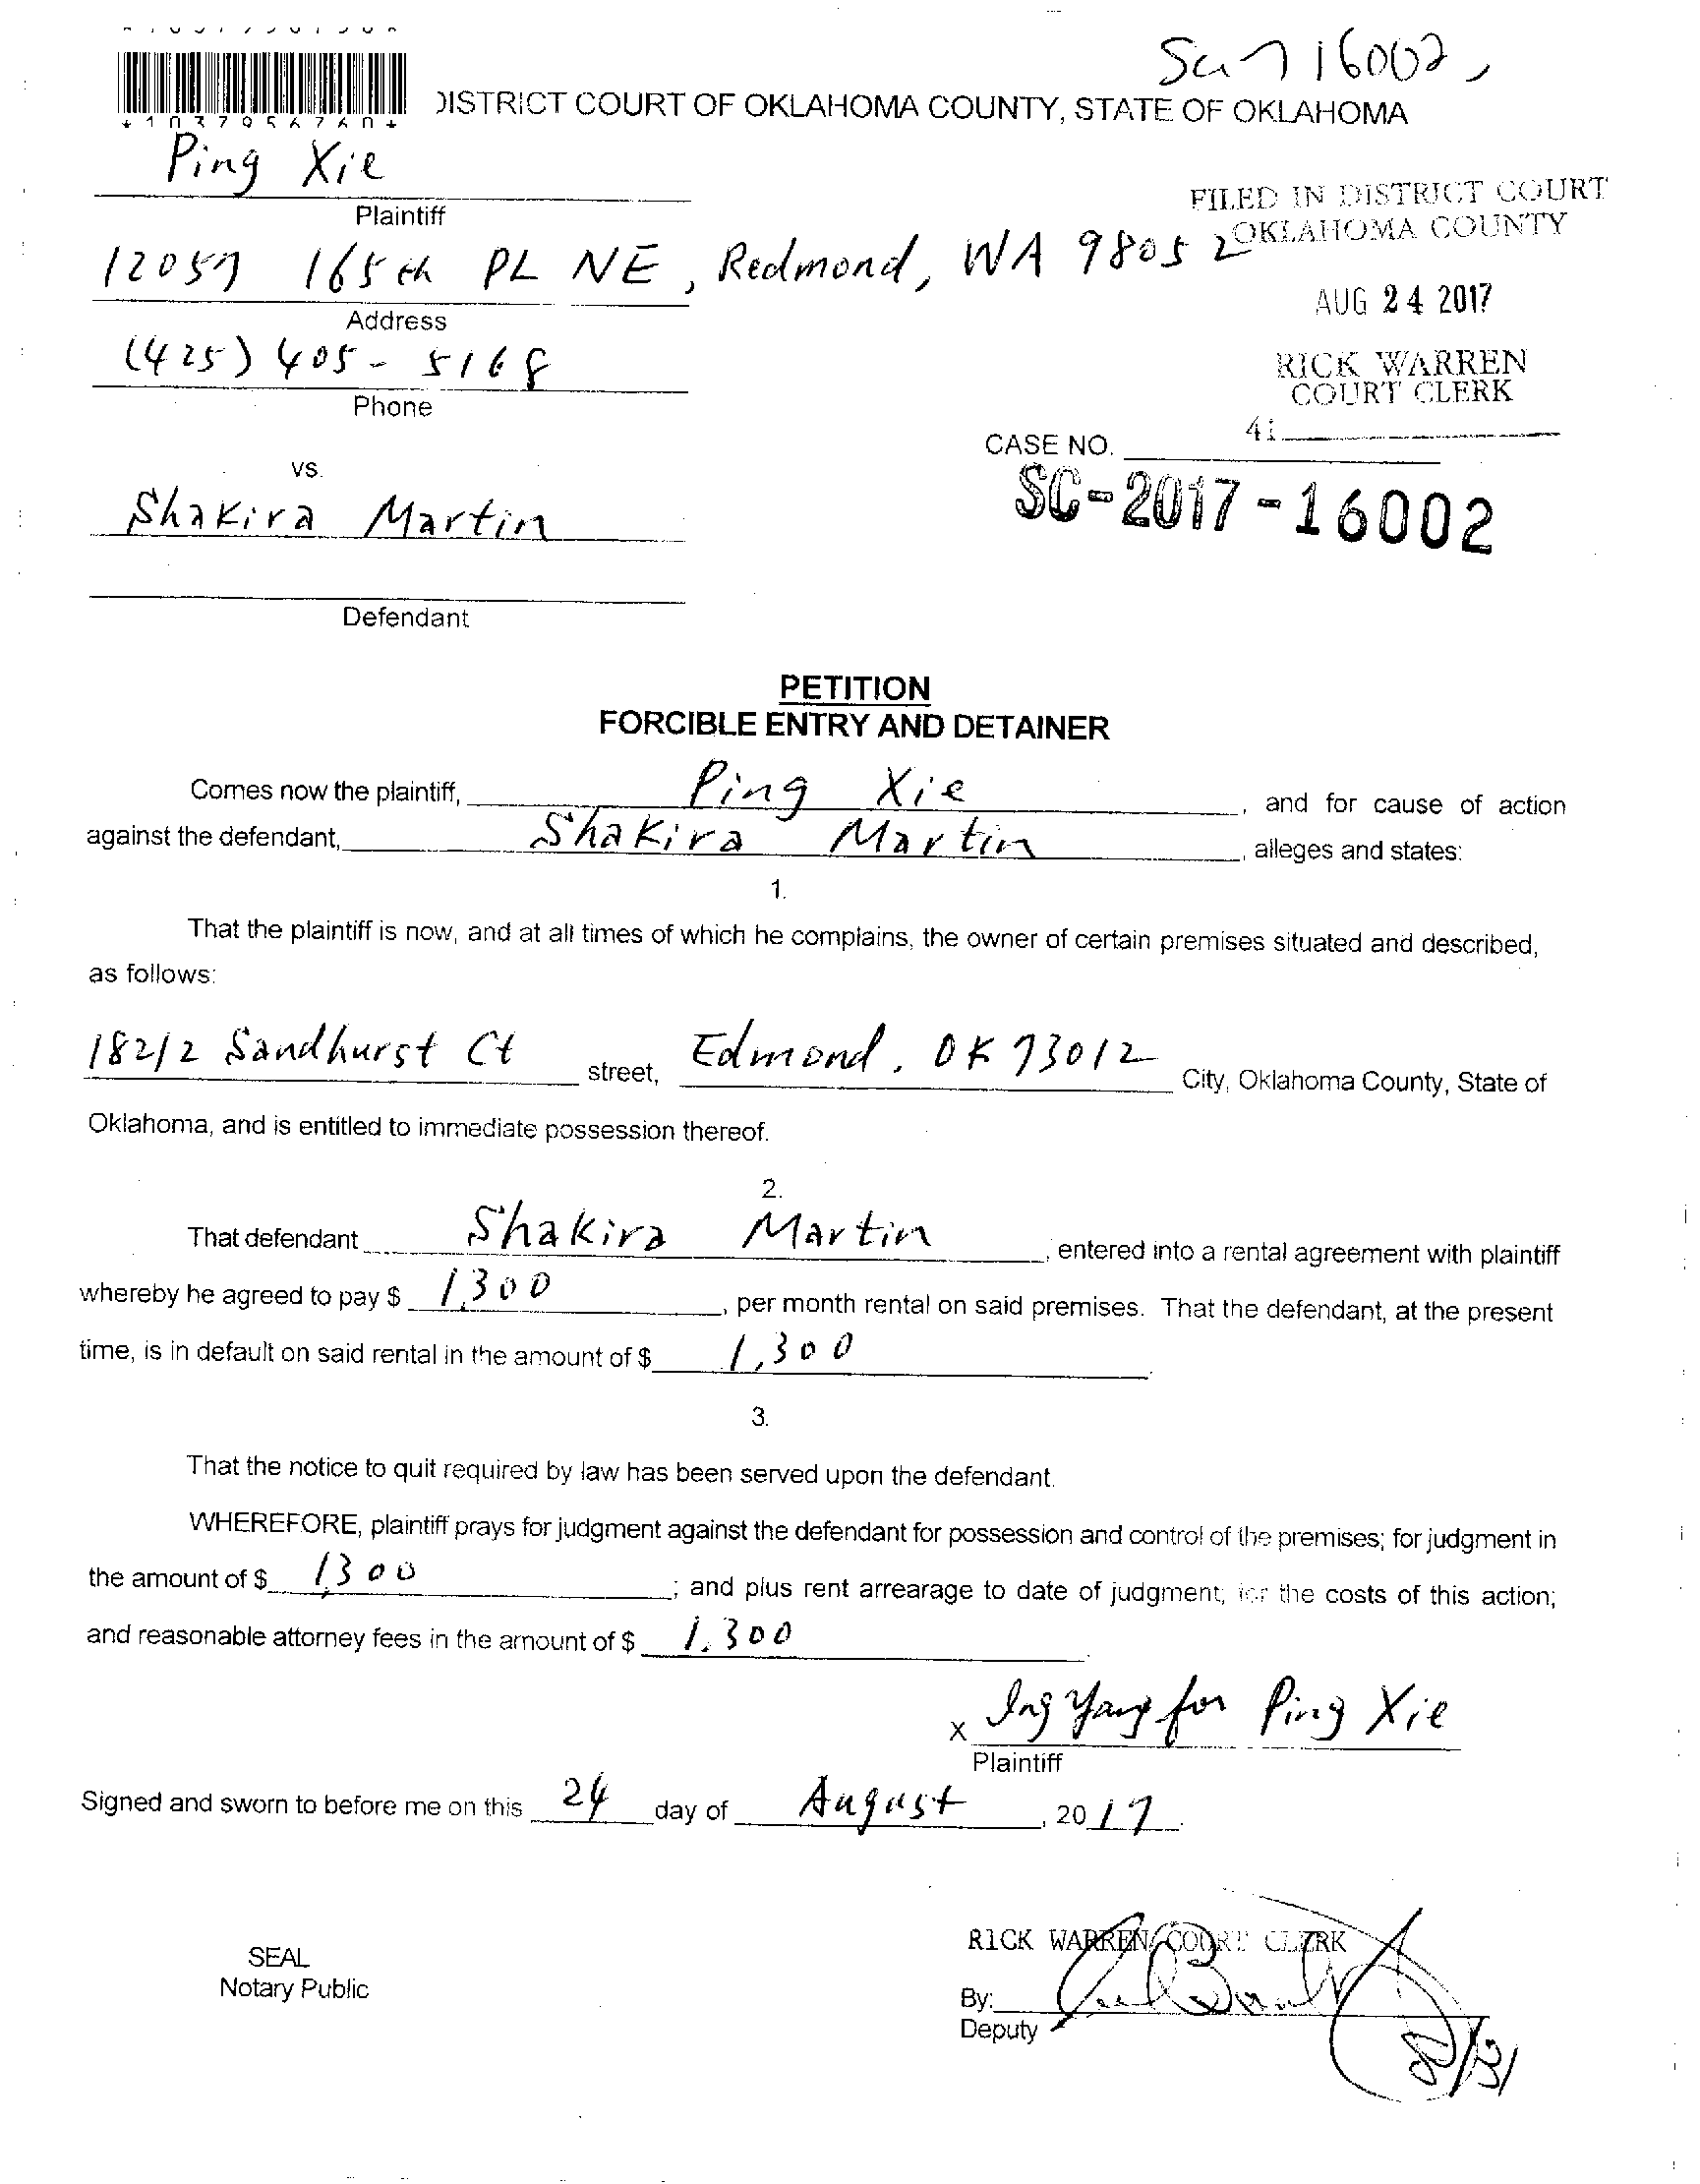 SC 17 16002,
*1037956760*
DISTRICT COURT OF OKLAHOMA COUNTY, STATE OF OKLAHOMA
Ping Xie
Plaintiff
FILED IN DISTRICT COURT
OKLAHOMA COUNTY
12057 165th PL NE, Redmond, WA 98052
AUG 24 2017
Address
(425) 405-5168
Phone
RICK WARREN
COURT CLERK
41
CASE NO.
SC-2017-16002
vs.
Shakira Martin
Defendant
PETITION
FORCIBLE ENTRY AND DETAINER
Comes now the plaintiff, Ping Xie, and for cause of action
against the defendant, Shakira Martin, alleges and states:
1.
That the plaintiff is now, and at all times of which he complains, the owner of certain premises situated and described,
as follows:
18212 Sandhurst Ct street, Edmond, OK 73012 City, Oklahoma County, State of
Oklahoma, and is entitled to immediate possession thereof.
2.
That defendant Shakira Martin, entered into a rental agreement with plaintiff
whereby he agreed to pay $ 1,300, per month rental on said premises. That the defendant, at the present
time, is in default on said rental in the amount of $ 1,300.
3.
That the notice to quit required by law has been served upon the defendant.
WHEREFORE, plaintiff prays for judgment against the defendant for possession and control of the premises; for judgment in
the amount of $ 1,300; and plus rent arrearage to date of judgment; for the costs of this action;
and reasonable attorney fees in the amount of $ 1,300.
x Ing Yang for Ping Xie
Plaintiff
Signed and sworn to before me on this 24 day of August, 2017.
SEAL
Notary Public
RICK WARREN COURT CLERK
By:
Deputy